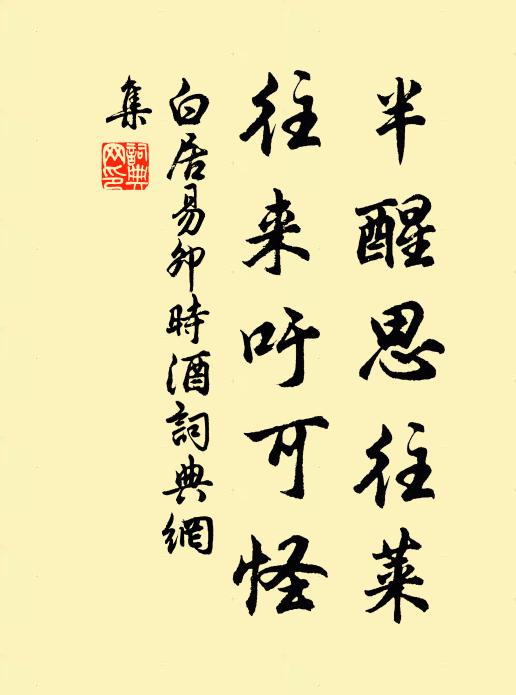 半醒思往莱
往来吁可怪
白居易卯時酒詞典網
集
詞典網印